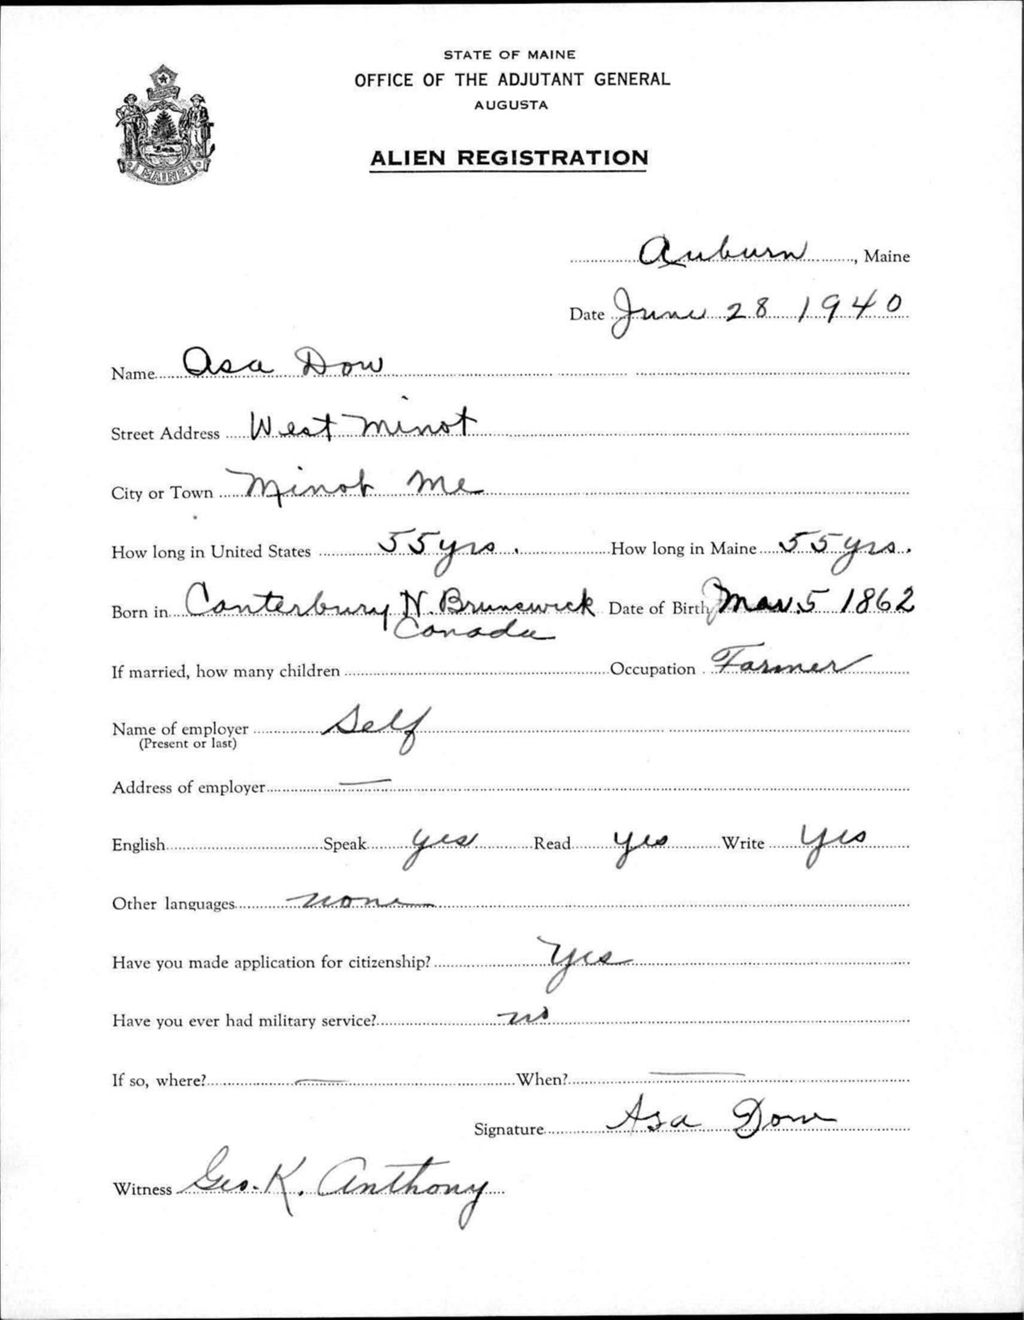 STATE OF MAINE
OFFICE OF THE ADJUTANT GENERAL
AUGUSTA
ALIEN REGISTRATION
MAINE
Auburn, Maine
Date June 28 1940
Name Asa Dow
Street Address West Minot
City or Town Minot Me
How long in United States 55 yrs. How long in Maine 55 yrs.
Born in Canterbury N. Brunswick Date of Birth Mar 5 1862
Canada
If married, how many children Occupation Farmer
Name of employer Self
(Present or last)
Address of employer —
English Speak yes Read yes Write Yes
Other languages none
Have you made application for citizenship? Yes
Have you ever had military service? no
If so, where? — When? —
Signature Asa Dow
Witness Geo. K. Anthony